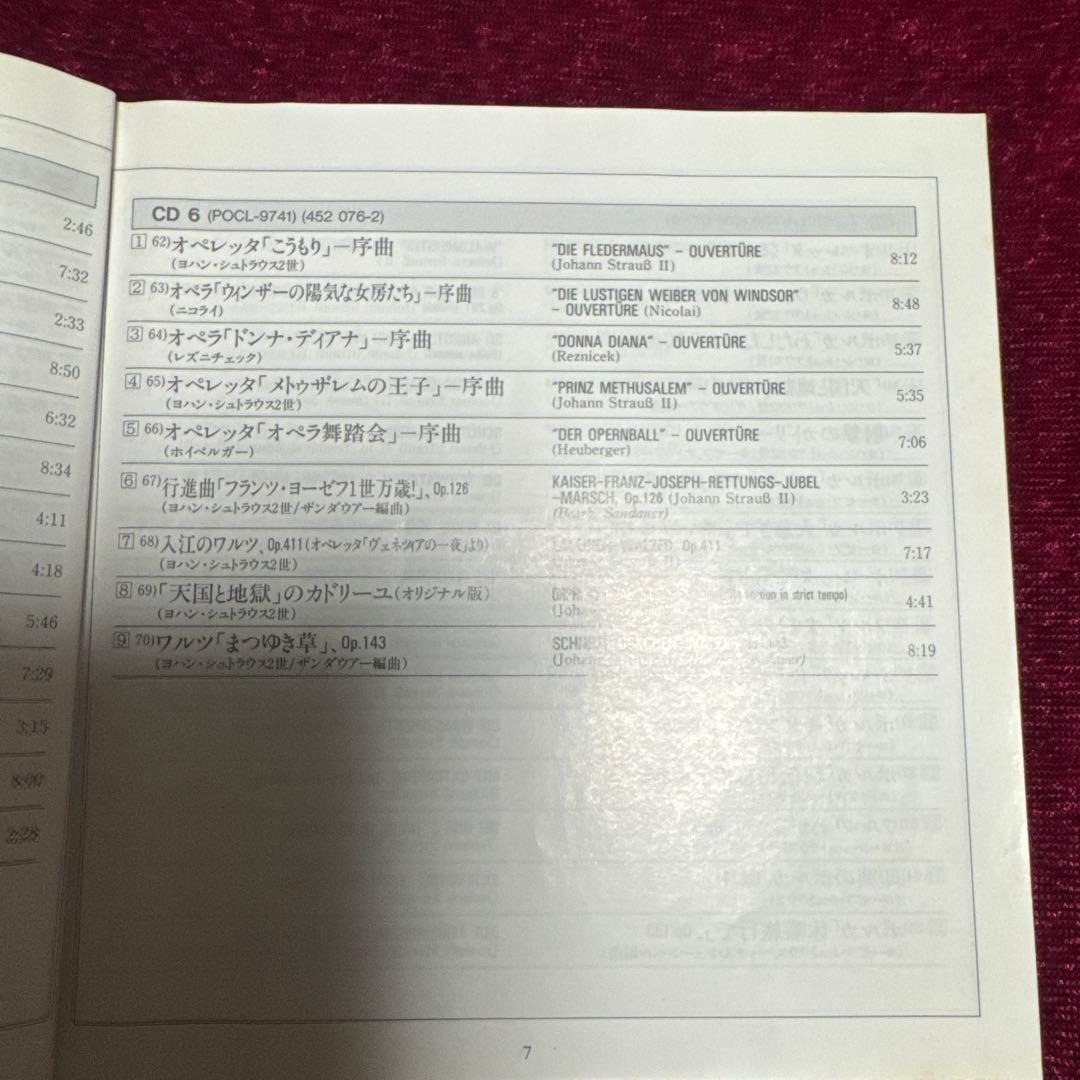 2:46
7:32
2:33
8:50
6:32
8:34
4:11
4:18
5:46
7:29
3:15
8:00
CD 6 (POCL-9741) (452 076-2)
1 62)オペレッタ「こうもり」－序曲 "DIE FLEDERMAUS" – OUVERTÜRE 8:12
(ヨハン・シュトラウス2世) (Johann Strauß II)
2 63)オペラ「ウィンザーの陽気な女房たち」－序曲 "DIE LUSTIGEN WEIBER VON WINDSOR" 8:48
(ニコライ) – OUVERTÜRE (Nicolai)
3 64)オペラ「ドンナ・ディアナ」－序曲 "DONNA DIANA" – OUVERTÜRE 5:37
(レズニチェック) (Reznicek)
4 65)オペレッタ「メトゥザレムの王子」－序曲 "PRINZ METHUSALEM" – OUVERTÜRE 5:35
(ヨハン・シュトラウス2世) (Johann Strauß II)
5 66)オペレッタ「オペラ舞踏会」－序曲 "DER OPERNBALL" – OUVERTÜRE 7:06
(ホイベルガー) (Heuberger)
6 67)行進曲「フランツ・ヨーゼフ1世万歳!」、Op.126 KAISER-FRANZ-JOSEPH-RETTUNGS-JUBEL
(ヨハン・シュトラウス2世/ザンダウアー編曲) –MARSCH, Op.126 (Johann Strauß II) 3:23
(Bearb. Sandauer)
7 68)入江のワルツ、Op.411(オペレッタ「ヴェネツィアの一夜」より) Op.411 7:17
(ヨハン・シュトラウス2世)
8 69)「天国と地獄」のカドリーユ(オリジナル版) version in strict tempo) 4:41
(ヨハン・シュトラウス2世)
9 70)ワルツ「まつゆき草」、Op.143 8:19
(ヨハン・シュトラウス2世/ザンダウアー編曲)
7